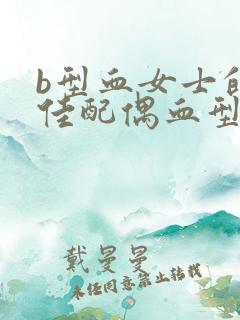 b型血女士的
佳配偶血型
戴曼曼
未经同意禁止转载